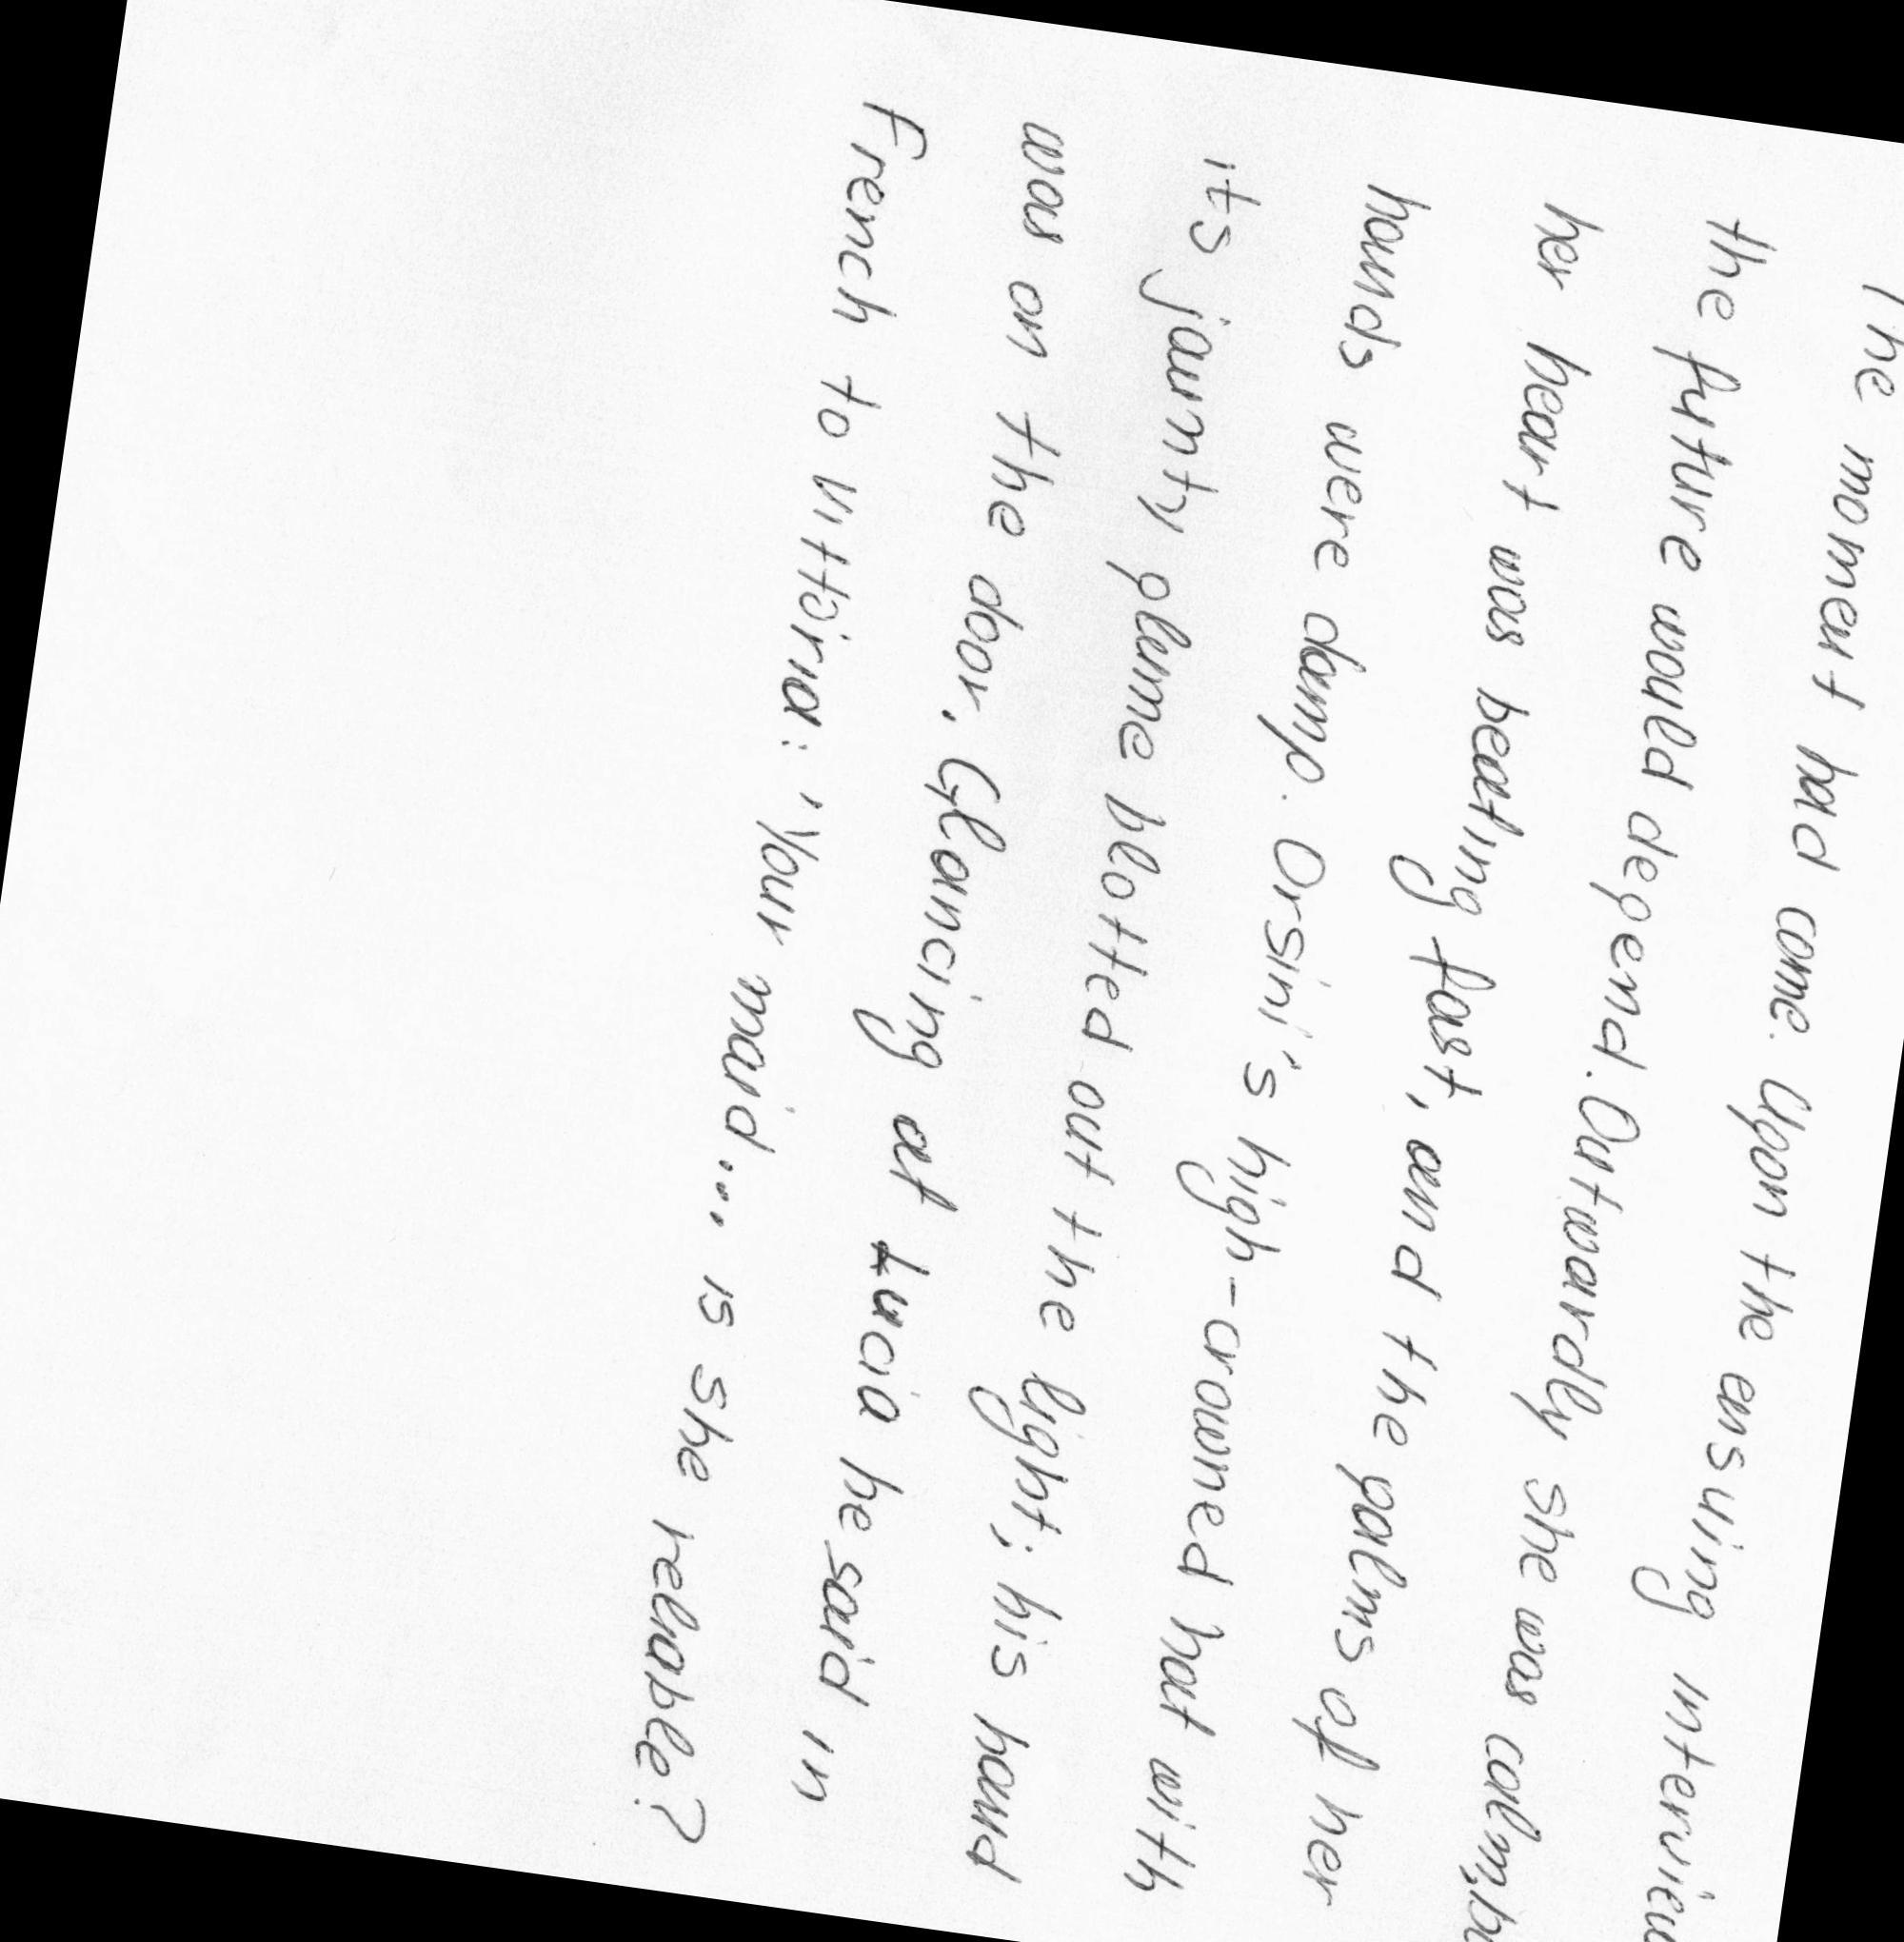 The moment had come. Upon the ensuing interview
the future would depend. Outwardly she was calm, bu
her heart was beating fast, and the palms of her
hands were damp. Orsini's high-crowned hat with
its jaunty plume blotted out the light; his hand
was on the door. Glancing at Lucia he said in
French to Vittoria: 'Your maid.... is she reliable?